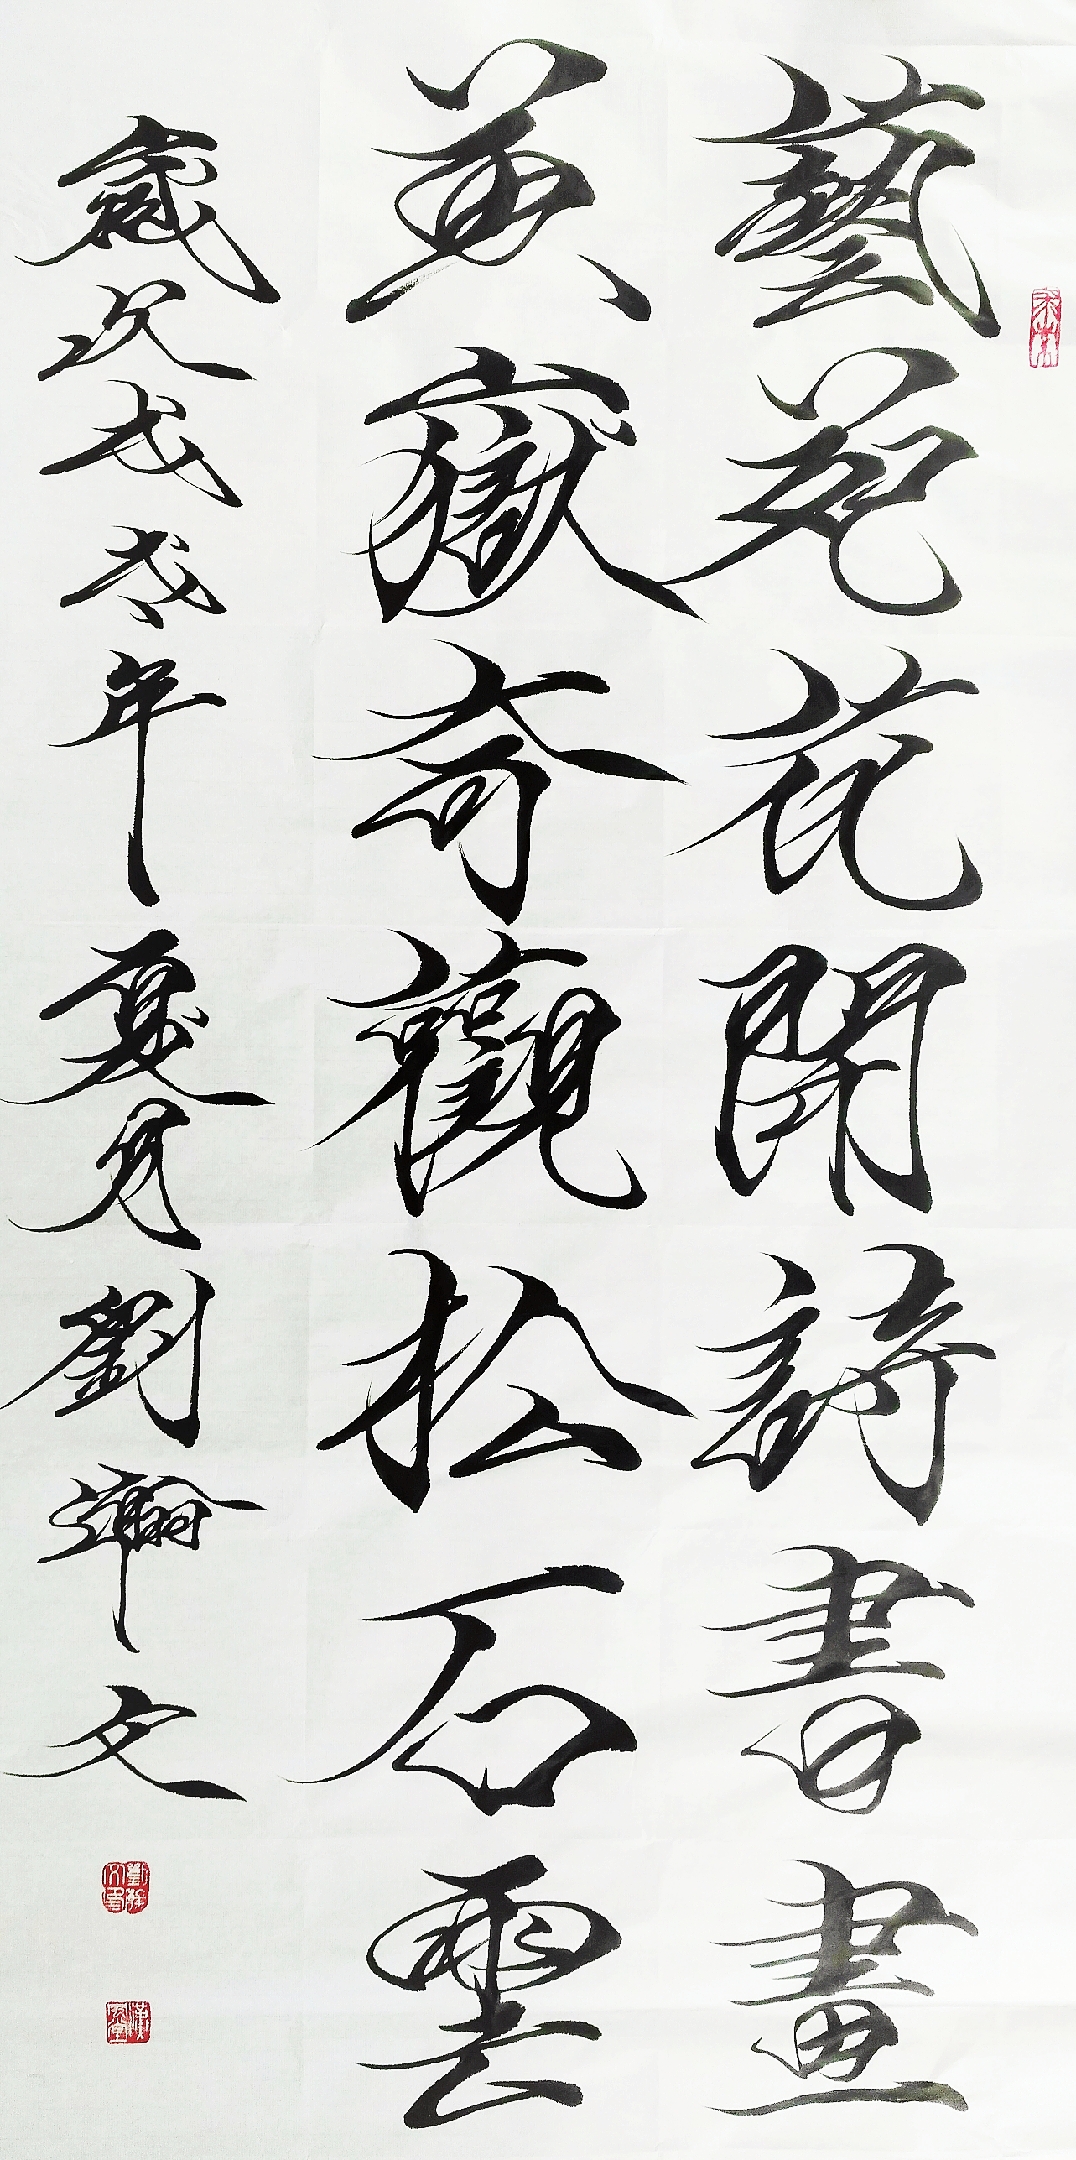 藝苑花開詩書畫
黃嶽奇觀松石雲
歲次戊戌年夏月劉瀚文